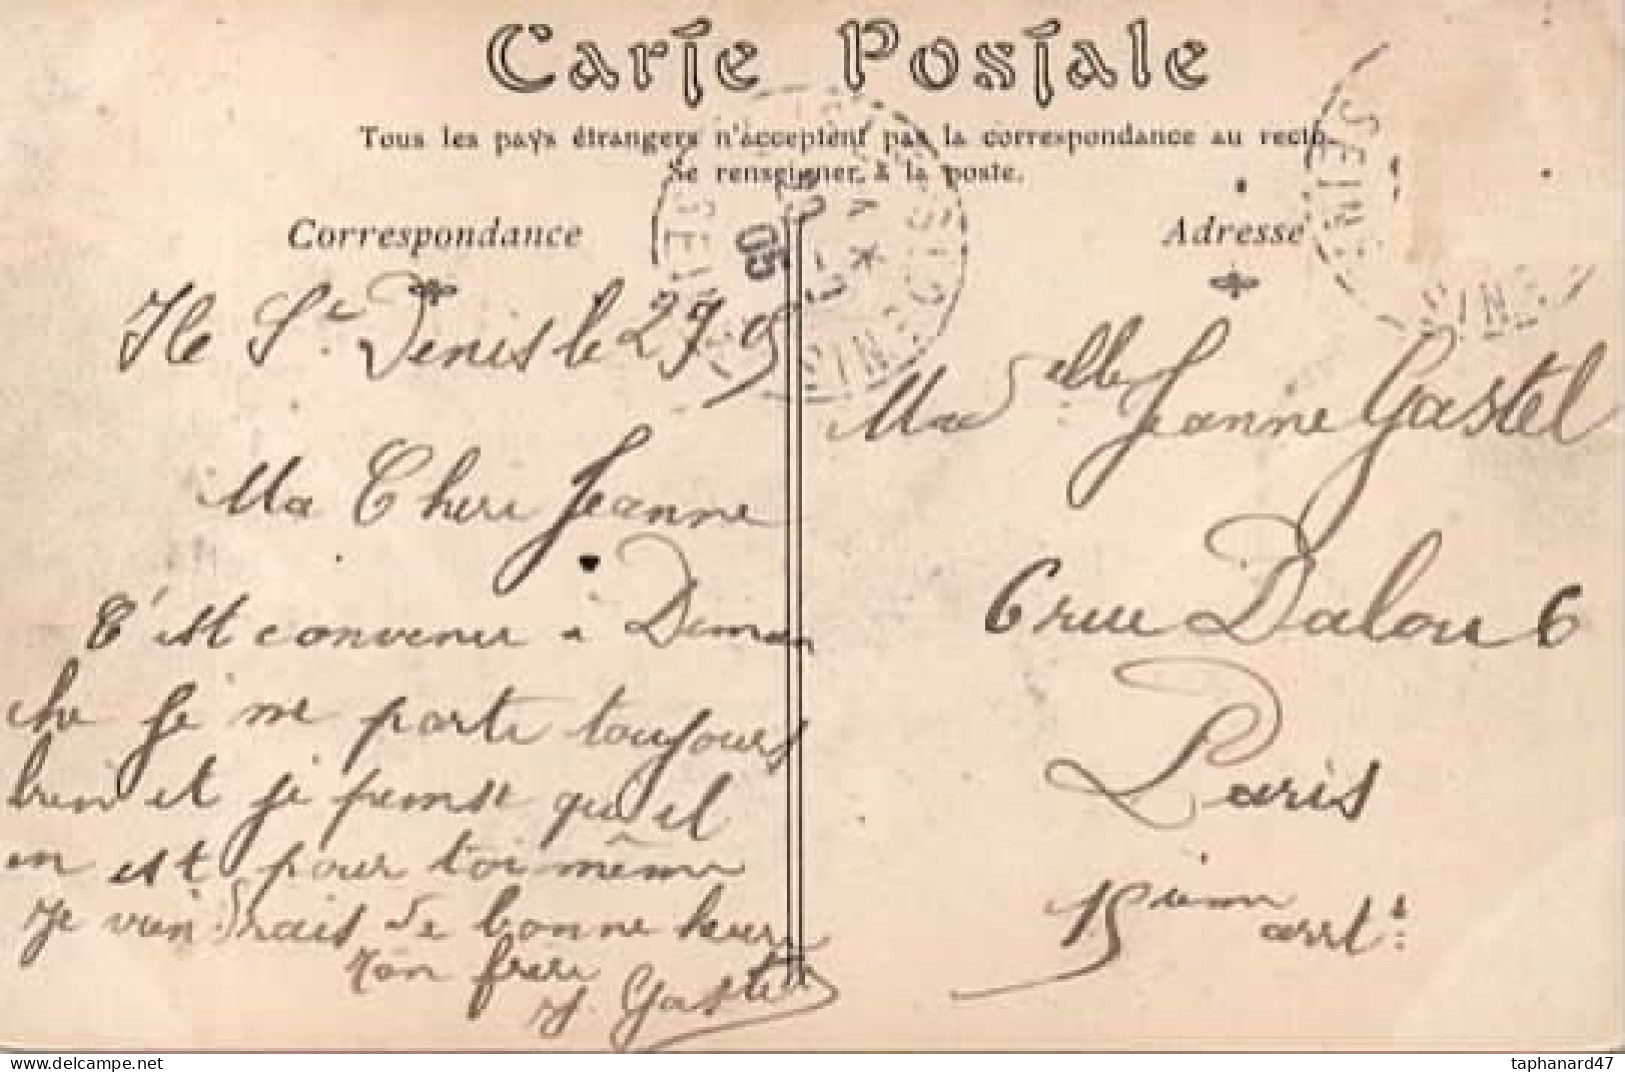 Carte Postale
Tous les pays étrangers n'acceptent pas la correspondance au recto.
Se renseigner à la poste.
Correspondance
Ile St Denis le 29 9
Ma Cheri Jeanne
C'est convenu a Diman
che Je me porte toujours
bien et je pense qu'il
en est pour toi même
Je viendrais de bonne heure
ton frere
J. Gastel
Adresse
Madelle Jeanne Gastel
6 rue Dalou 6
Paris
15ième arrt
05
SEINE
taphanard47